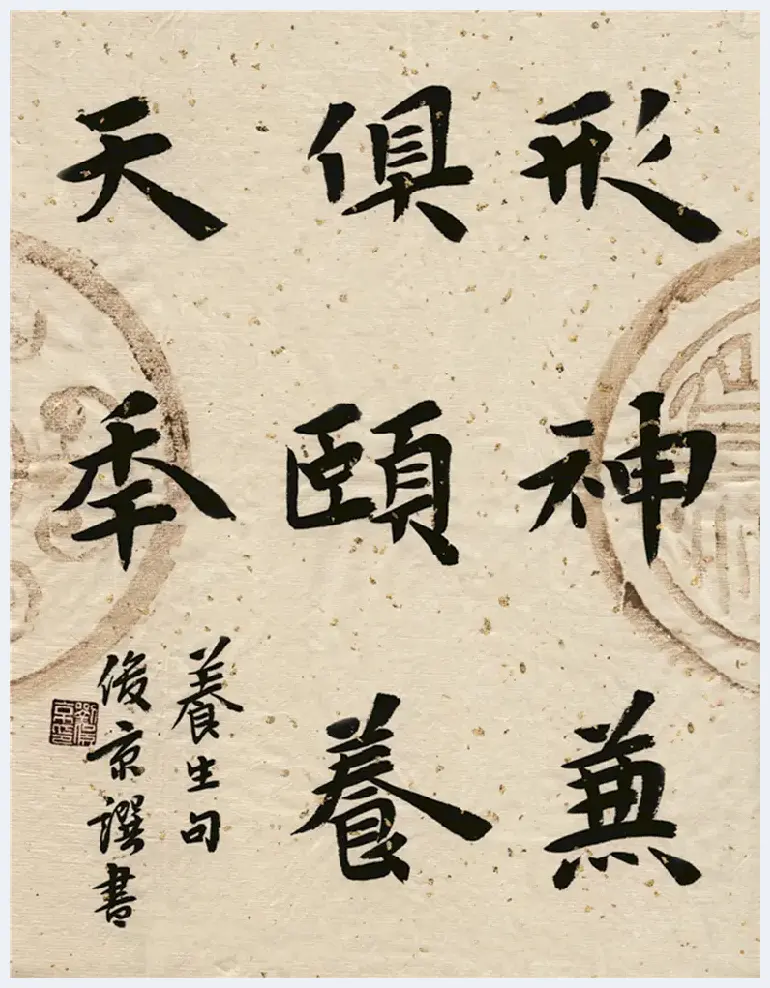 形神兼
俱頤養
天年
養生句
俊京譔書